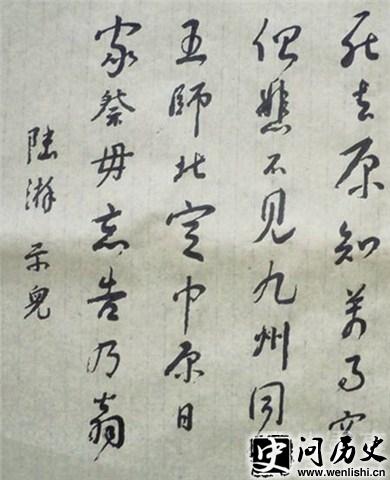 死去原知萬事空
但悲不见九州同
王師北定中原日
家祭毋忘告乃翁
陸游 示兒
史 问历史
www.wenlishi.cn